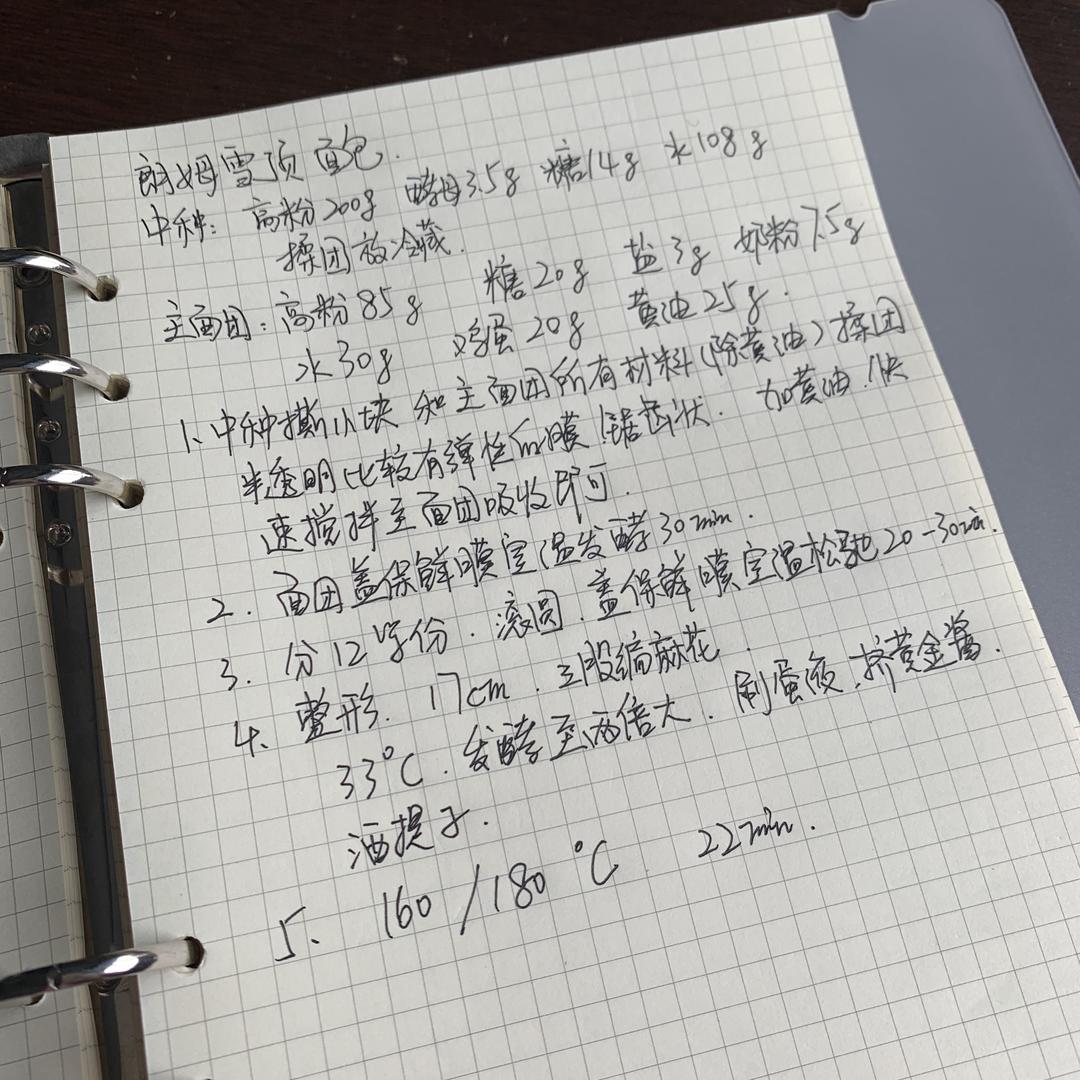 朗姆雪顶面包.
中种: 高粉200g 酵母3.5g 糖14g 水108g
揉团放冷藏.
主面团: 高粉85g 糖20g 盐3g 奶粉7.5g
水30g 鸡蛋20g 黄油25g.
1、中种撕小块 和主面团所有材料(除黄油)揉团
半透明比较有弹性的膜 锯齿状. 加黄油.快
速搅拌至面团吸收即可.
2. 面团盖保鲜膜室温发酵30min.
3. 分12等份. 滚圆. 盖保鲜膜室温松驰20-30min.
4、整形. 17cm. 三股编麻花.
33°C. 发酵至两倍大. 刷蛋液.挤黄金酱.
酒提子.
5、 160/180°C 22min.